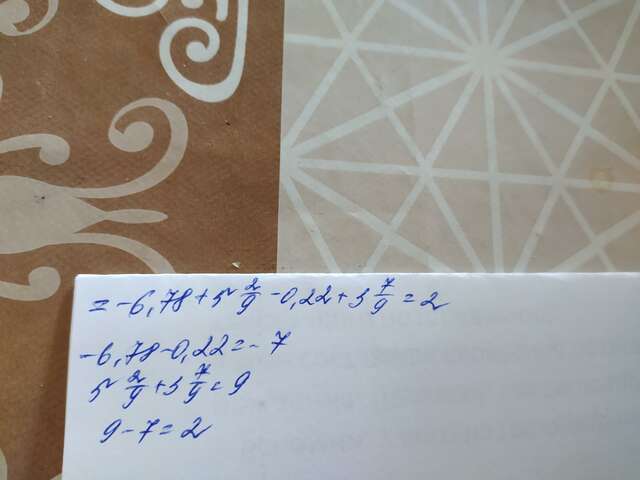 = -6,78 + 5 2/9 - 0,22 + 3 7/9 = 2
-6,78 - 0,22 = -7
5 2/9 + 3 7/9 = 9
9 - 7 = 2